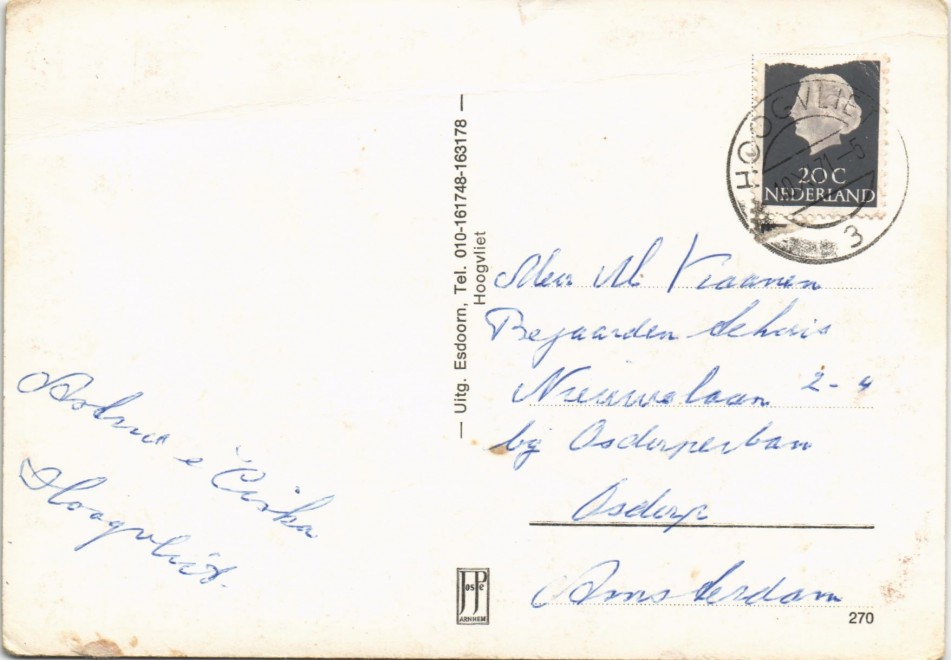 HOOGVLIE
71-5
3
20 C
NEDERLAND
— Uitg. Esdoorn, Tel. 010-161748-163178 —
Hoogvliet
M. Kraanen
Bejaarden tehuis
2-4
bij Osdorperban
Osdorp
Amsterdam
e Ciska
Hoogvliet.
JosPe
ARNHEM
270